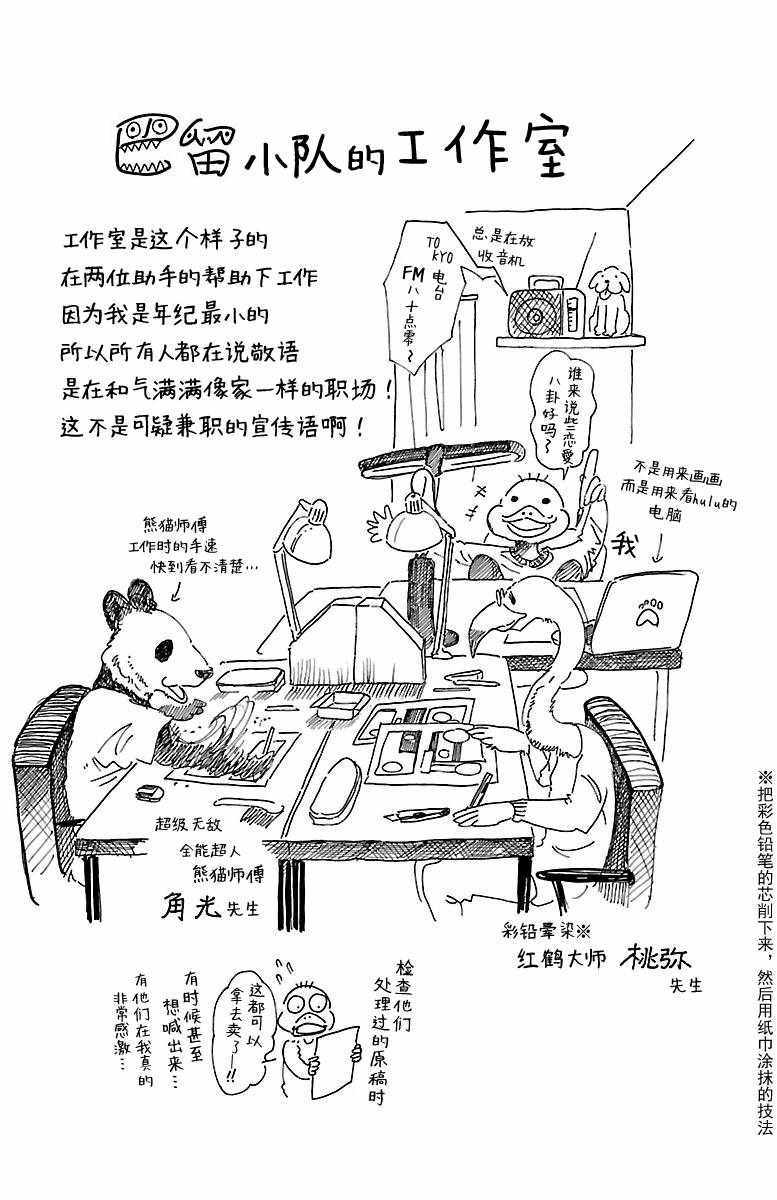 巴留小队的工作室
工作室是这个样子的
在两位助手的帮助下工作
因为我是年纪最小的
所以所有人都在说敬语
是在和气满满像家一样的职场！
这不是可疑兼职的宣传语啊！
TO
KYO
FM
电台
八十点零～
总是在放
收音机
谁来说些恋爱
八卦好吗～
我
不是用来画画
而是用来看hulu的
电脑
熊猫师傅
工作时的手速
快到看不清楚…
超级无敌
全能超人
熊猫师傅
角光先生
彩铅晕染※
红鹤大师 桃弥
先生
检查他们
处理过的原稿时
这都可以
拿去卖了——!!
有时候甚至
想喊出来…
有他们在我真的
非常感激…
※把彩色铅笔的芯削下来，然后用纸巾涂抹的技法